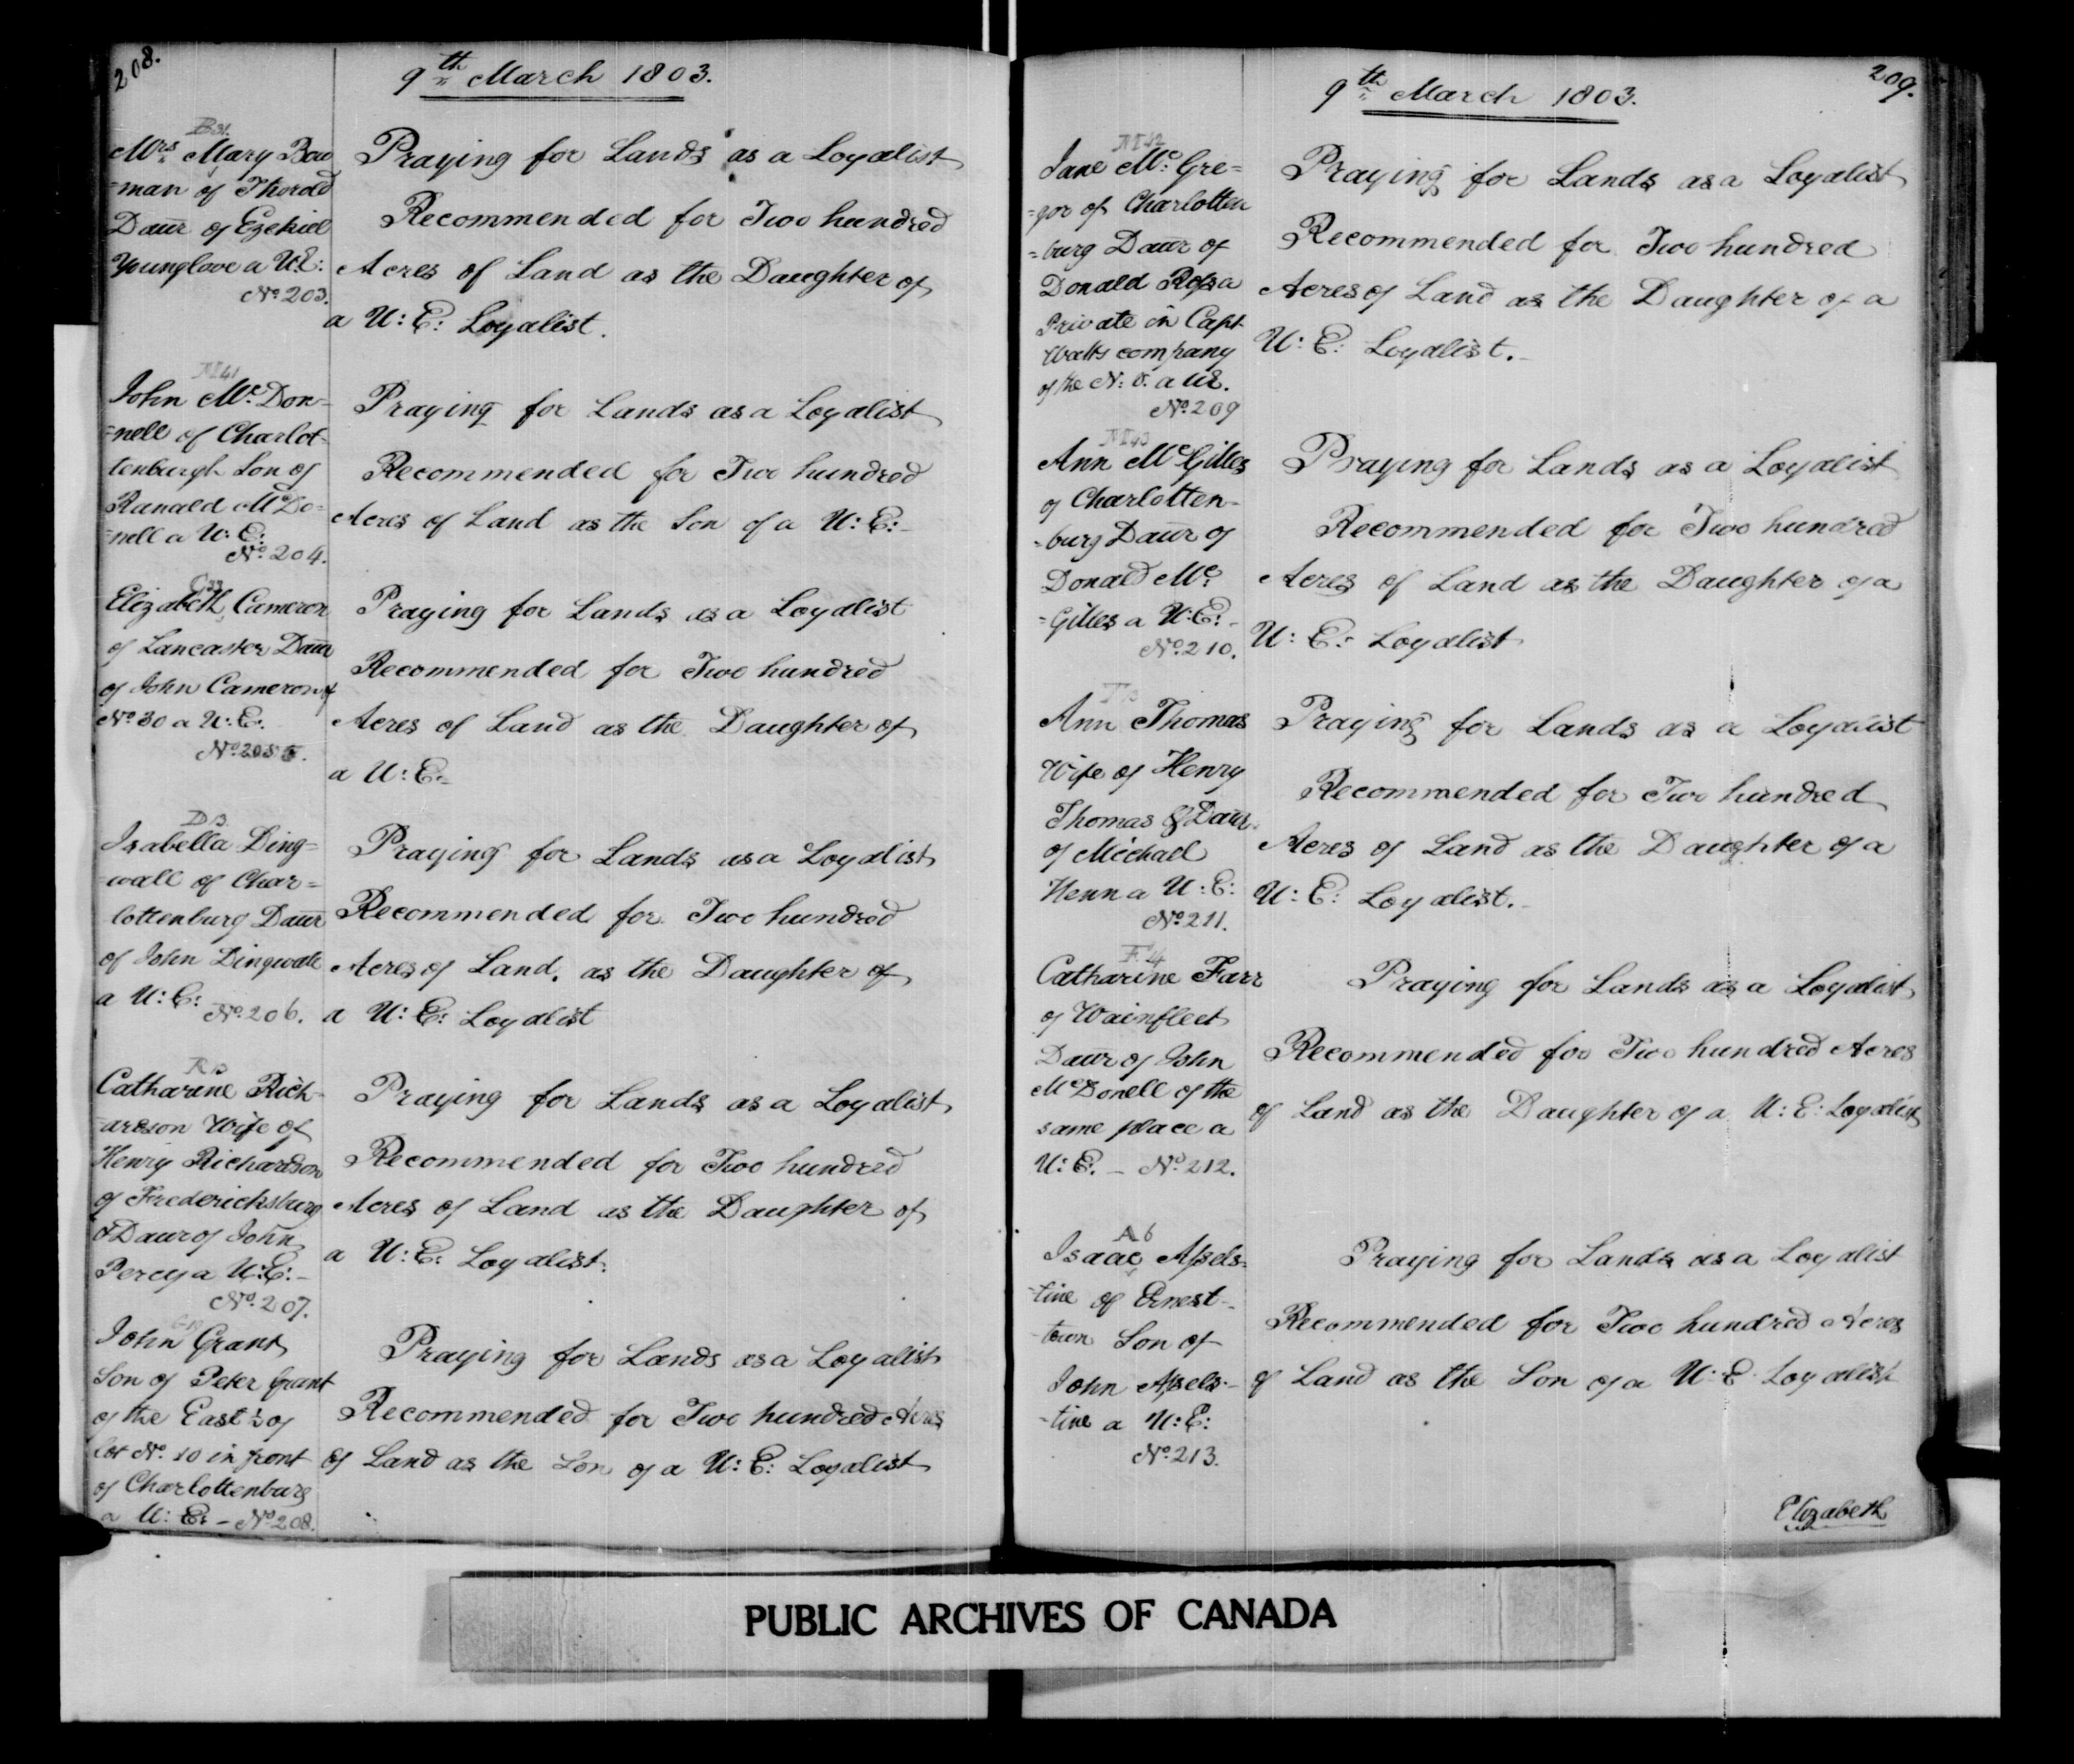 208.
9th March 1803.
B 31.
Mrs Mary Bow
=man of Thorold
Daur of Ezekiel
Younglove a U.E:
No 203.
Praying for Lands as a Loyalist
Recommended for Two hundred
Acres of Land as the Daughter of
a U: E: Loyalist.
M 41
John Mc Don-
=nell of Charlot-
tenburgh Son of
Ranald McDo=
=nell a U: E:
No 204.
Praying for Lands as a Loyalist
Recommended for Two hundred
Acres of Land as the Son of a U: E:-
C 33
Elizabeth Cameron
of Lancaster Daur
of John Cameron of
No 30 a U: E:
No 205.
Praying for Lands as a Loyalist
Recommended for Two hundred
Acres of Land as the Daughter of
a U: E:-
D 3.
Isabella Ding=
=wall of Char=
lottenburg Daur
of John Dingwall
a U: E:
No 206.
Praying for Lands as a Loyalist
Recommended for Two hundred
Acres of Land, as the Daughter of
a U: E: Loyalist
R 13
Catharine Rich-
=ardson Wife of
Henry Richardson
of Fredericksburg
& Daur of John
Percy a U: E:-
No 207.
Praying for Lands as a Loyalist
Recommended for Two hundred
Acres of Land as the Daughter of
a U: E: Loyalist.
G 10
John Grant
Son of Peter Grant
of the East ½ of
lot No 10 in front
of Charlottenburg
a U: E: - No 208.
Praying for Lands as a Loyalist
Recommended for Two hundred Acres
of Land as the Son of a U: E: Loyalist
209.
9th March 1803.
M 42
Jane Mc Gre=
=gor of Charlotten
=burg Daur of
Donald Ross a
Private in Capt
Watts company
of the N: V. a UE.
No 209
Praying for Lands as a Loyalist
Recommended for Two hundred
Acres of Land as the Daughter of a
U: E: Loyalist.-
M 43
Ann McGilles
of Charlotten-
=burg Daur of
Donald Mc
=Gilles a U: E:-
No 210.
Praying for Lands as a Loyalist
Recommended for Two hundred
Acres of Land as the Daughter of a
U: E: Loyalist
Ann Thomas
Wife of Henry
Thomas & Daur
of Michael
Henn a U: E:
No 211.
Praying for Lands as a Loyalist
Recommended for Two hundred
Acres of Land as the Daughter of a
U: E: Loyalist.-
F 4
Catharine Farr
of Wainfleet
Daur of John
McDonell of the
same place a
U: E. - No 212.
Praying for Lands as a Loyalist
Recommended for Two hundred Acres
of Land as the Daughter of a U: E: Loyalist
A 6
Isaac Assels=
=tine of Ernest-
town Son of
John Assels-
=tine a U: E:
No 213.
Praying for Lands as a Loyalist
Recommended for Two hundred Acres
of Land as the Son of a U: E. Loyalist
Elizabeth
PUBLIC ARCHIVES OF CANADA